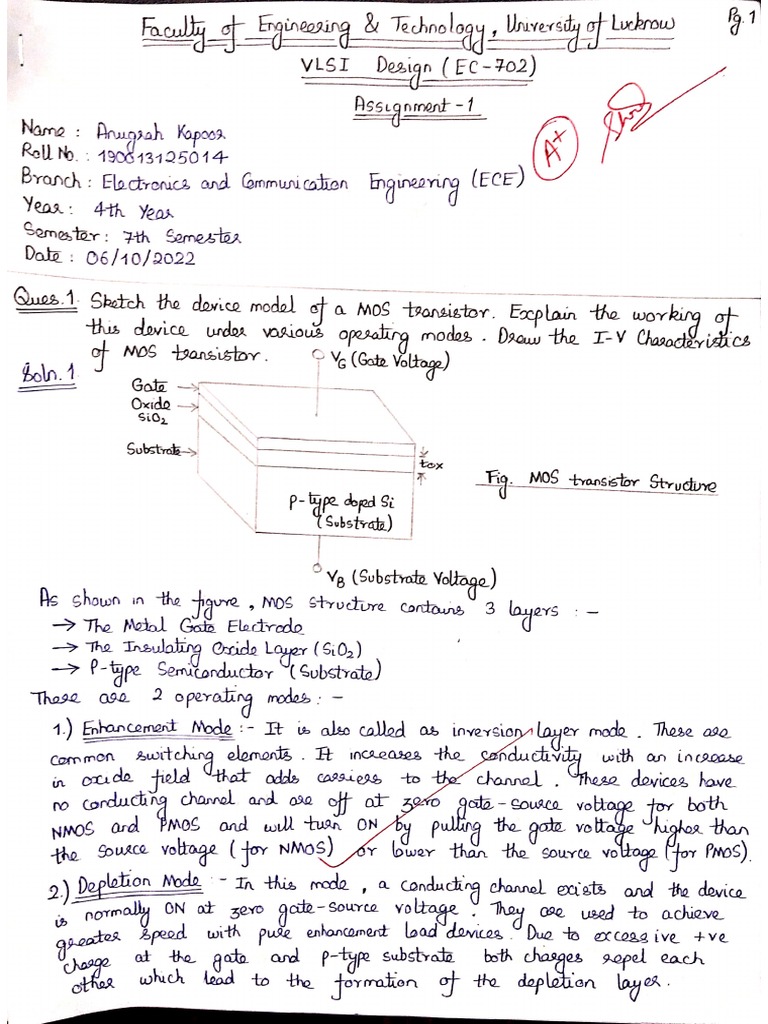 Pg. 1
Faculty of Engineering & Technology, University of Lucknow
VLSI Design (EC-702)
Assignment-1
Name : Anugrah Kapoor
Roll No. : 190013125014
Branch : Electronics and Communication Engineering (ECE)
Year : 4th Year
Semester : 7th Semester
Date : 06/10/2022
A+
Ques.1. Sketch the device model of a MOS transistor. Explain the working of
this device under various operating modes. Draw the I-V Characteristics
of MOS transistor.
Soln.1
VG (Gate Voltage)
Gate
Oxide
SiO2
Substrate
tox
P-type doped Si
(Substrate)
Fig. MOS transistor Structure
VB (Substrate Voltage)
As shown in the figure, MOS structure contains 3 layers :-
→ The Metal Gate Electrode
→ The Insulating Oxide Layer (SiO2)
→ P-type Semiconductor (Substrate)
There are 2 operating modes :-
1.) Enhancement Mode :- It is also called as inversion layer mode. These are
common switching elements. It increases the conductivity with an increase
in oxide field that adds carriers to the channel. These devices have
no conducting channel and are off at zero gate-source voltage for both
NMOS and PMOS and will turn ON by pulling the gate voltage higher than
the source voltage (for NMOS) or lower than the source voltage (for PMOS).
2.) Depletion Mode :- In this mode, a conducting channel exists and the device
is normally ON at zero gate-source voltage. They are used to achieve
greater speed with pure enhancement load devices. Due to excessive +ve
charge at the gate and p-type substrate both charges repel each
other which lead to the formation of the depletion layer.